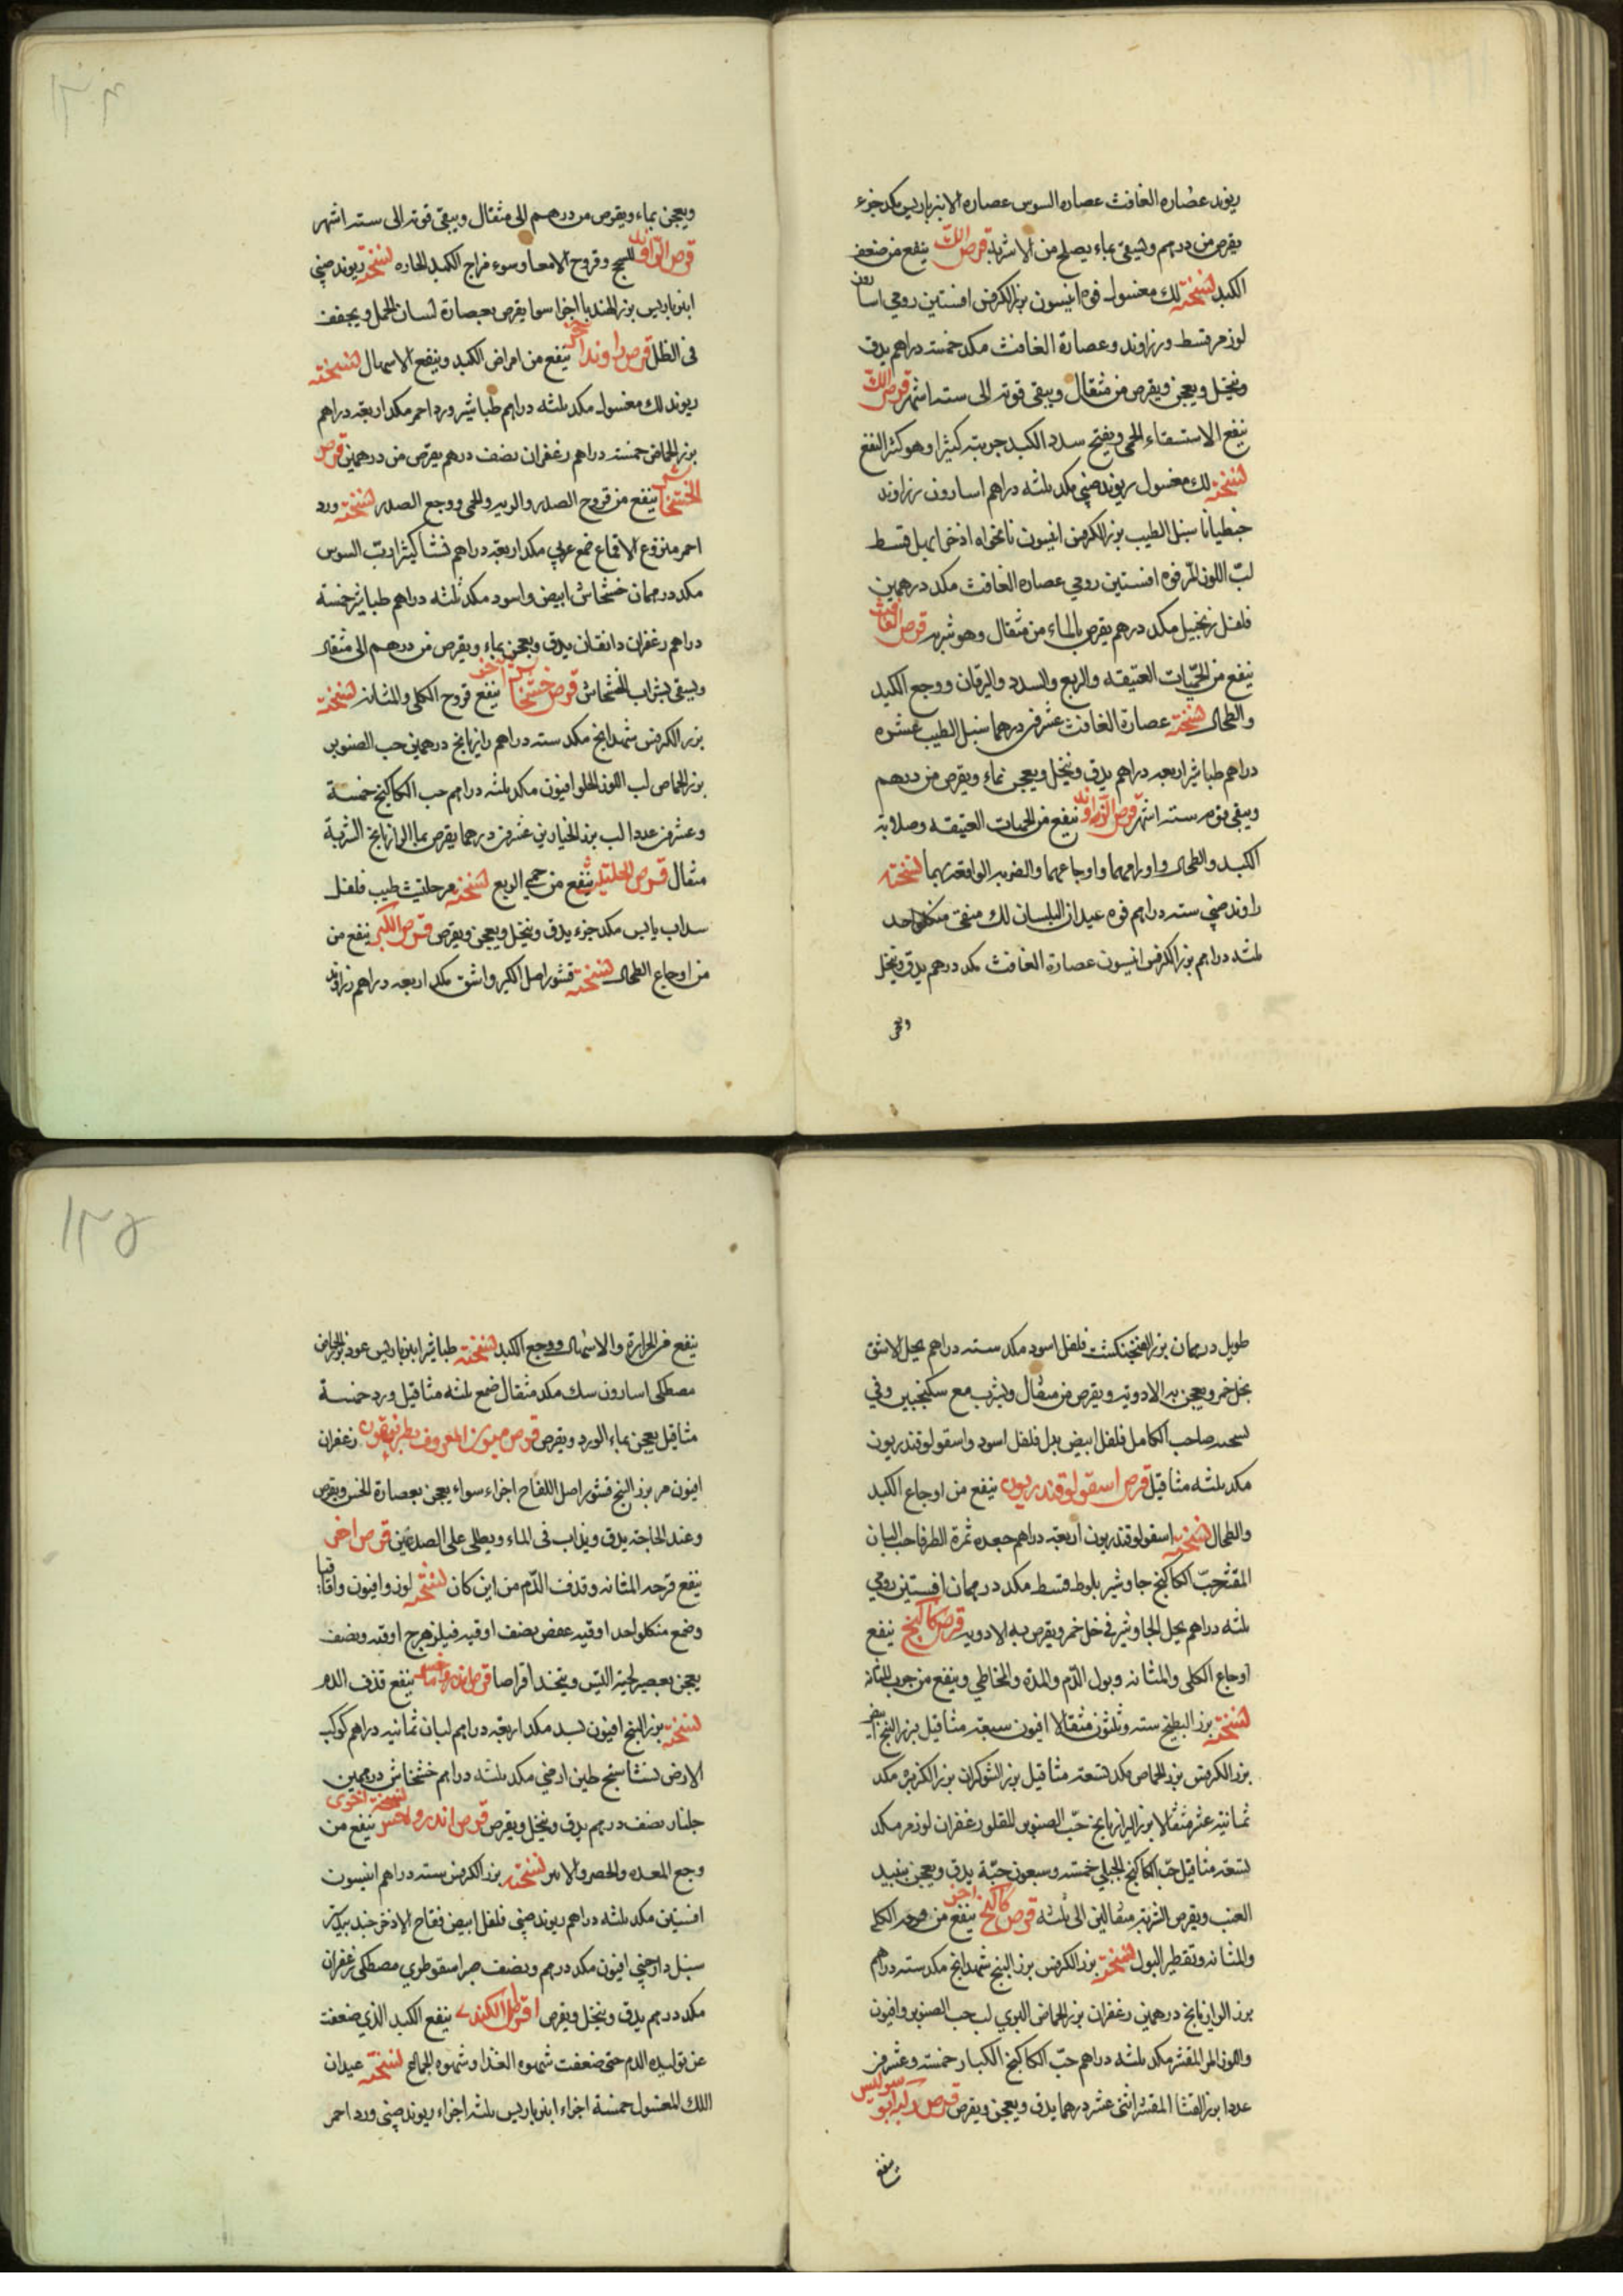 ريوند عصاره الغافث عصاره السوس عصاره الانبرباريس مكد جزء
يقرص من درهم ويسقى بماء يصلح من الاشربة قرص اللك ينفع من ضعف
الكبد نسخته لك مغسول فوه انيسون بزر الكرفس افسنتين رومي اسارون
لوز مر قسط وزراوند وعصارة الغافث مكد خمسه دراهم يدق
وينخل ويعجن ويقرص من مثقال ويبقى قوته الى سته اشهر قرص اللك
ينفع الاستسقاء اللحمي ويفتح سدد الكبد جربته كثيرا وهو كثير النفع
نسخته لك مغسول ريوند صيني مكد ثلثه دراهم اسارون زراوند
جنطيانا سنبل الطيب بزر الكرفس انيسون نانخواه اذخر ابهل قسط
لب اللوز المر فوه افسنتين رومي عصاره الغافث مكد درهمين
فلفل زنجبيل مكد درهم يقرص بالماء من مثقال وهو شربه قرص الغافث
ينفع من الحميات العتيقه والربع والسدد واليرقان ووجع الكبد
والطحال نسخته عصارة الغافث عشرين درهما سنبل الطيب عشره
دراهم طباشير اربعه دراهم يدق وينخل ويعجن بماء ويقرص من درهم
ويبقى قوته سته اشهر قرص الراوند ينفع من الحميات العتيقه وصلابة
الكبد والطحال واورامهما واوجاعهما والضربه الواقعه بهما نسخته
راوند صيني سته دراهم فوه عيدان البلسان لك منقى من كل واحد
ثلثه دراهم بزر الكرفس انيسون عصارة الغافث مكد درهم يدق وينخل
ويعجن
١٣٤
ويعجن بماء ويقرص من درهم الى مثقال ويبقى قوته الى سته اشهر
قرص الراوند للسحج وقروح الامعا وسوء مزاج الكبد الحاره نسخته ريوند صيني
انبرباريس بزر الهندبا اجزا سوا يقرص بعصارة لسان الحمل ويجفف
فى الظل قرص راوند اخر ينفع من امراض الكبد وينفع الاسهال نسخته
ريوند لك مغسول مكد ثلثه دراهم طباشير ورد احمر مكد اربعه دراهم
بزر الحماض خمسه دراهم زعفران نصف درهم يقرص من درهمين قرص
الخشخاش ينفع من قروح الصدر والربو والحمى ووجع الصدر نسخته ورد
احمر منزوع الاقماع صمغ عربي مكد اربعة دراهم نشا كثيرا رب السوس
مكد درهمان خشخاش ابيض واسود مكد ثلثه دراهم طباشير خمسة
دراهم زعفران دانقان يدق ويعجن بماء ويقرص من درهم الى مثقال
ويسقى بشراب الخشخاش قرص خشخاش اخر ينفع قروح الكلى والمثانه نسخته
بزر الكرفس شهدانج مكد سته دراهم رازيانج درهمين حب الصنوبر
بزر الحماض لب اللوز الحلو افيون مكد ثلثه دراهم حب الكاكنج خمسة
وعشرين عددا لب بزر الخيارين عشرين درهما يقرص بماء الرازيانج الشربة
مثقال قرص الحلتيت ينفع من حمى الربع نسخته مر حلتيت طيب فلفل
سداب يابس مكد جزء يدق وينخل ويعجن ويقرص قرص الكبر ينفع من
من اوجاع الطحال نسخته قشور اصل الكبر واشق مكد اربعه دراهم زراوند
طويل درهمان بزر الفنجنكشت فلفل اسود مكد سته دراهم يحل الاشق
بخل خمر ويعجن به الادويه ويقرص من مثقال ويشرب مع سكنجبين وفي
نسخه صاحب الكامل فلفل ابيض بدل فلفل اسود واسقولوقندريون
مكد ثلثه مثاقيل قرص اسقولوقندريون ينفع من اوجاع الكبد
والطحال نسخته اسقولوقندريون اربعة دراهم جعده ثمرة الطرفا حب البان
المقشر حب الكاكنج جاوشير بلوط قسط مكد درهمان افسنتين رومي
ثلثه دراهم يحل الجاوشير في خل خمر ويقرص به الادويه قرص كاكنج ينفع
اوجاع الكلى والمثانه وبول الدم والمده والمخاطي وينفع من جرب المثانه
نسخته بزر البطيخ سته وثلثون مثقالا افيون سبعة مثاقيل بزر البنج ابيض
بزر الكرفس بزر الحماض مكد تسعه مثاقيل بزر الشوكران بزر الكزبره مكد
ثمانية عشر مثقالا بزر الرازيانج حب الصنوبر المقلو زعفران لوز مر مكد
تسعه مثاقيل حب الكاكنج الجبلي خمسة وسبعون حبة يدق ويعجن بنبيد
العنب ويقرص الشربه مثقالين الى ثلثه قرص كاكنج اخر ينفع من قرحه الكلى
والمثانه وتقطير البول نسخته بزر الكرفس بزر البنج شهدانج مكد سته دراهم
بزر الرازيانج درهمين زعفران بزر الحماض البري لب حب الصنوبر وافيون
واللوز المر المقشر مكد ثلثه دراهم حب الكاكنج الكبار خمسة وعشرين
عددا بزر القثا المقشر اثنى عشر درهما يدق ويعجن ويقرص قرص
ينفع
١٣٥
ينفع من الحرارة والاسهال ووجع الكبد نسخته طباشير انبرباريس عود بزر الحماض
مصطكى اسارون سك مكد مثقال صمغ ثلثه مثاقيل ورد خمسة
مثاقيل يعجن بماء الورد ويقرص قرص المعروف زعفران
افيون مر بزر البنج قشور اصل اللفاح اجزاء سواء يعجن بعصارة الخس ويقرص
وعند الحاجة يدق ويذاب فى الماء ويطلى على الصدغين قرص اخر
ينفع قرحه المثانه وقذف الدم من اين كان نسخته لوز وافيون واقاقيا
وصمغ من كل واحد اوقيه عفص نصف اوقيه فيلزهرج اوقيه ونصف
يعجن بعصير لحية التيس ويتخذ اقراصا قرص اندروماخس ينفع قذف الدم
نسخته بزر البنج افيون بسد مكد اربعة دراهم لبان ثمانيه دراهم كوكب
الارض نشاستج طين ارمني مكد ثلثه دراهم خشخاش درهمين
جلنار نصف درهم يدق وينخل ويقرص قرص اندروماخس نسخة اخرى ينفع من
وجع المعده والحصر والاسر نسخته بزر الكرفس سته دراهم انيسون
افسنتين مكد ثلثه دراهم ريوند صيني فلفل ابيض فقاح الاذخر جندبيدستر
سنبل دارصيني افيون مكد درهم ونصف صبر اسقوطري مصطكى زعفران
مكد درهم يدق وينخل ويقرص اقراص الكندي ينفع الكبد الذي ضعفت
عن توليد الدم حتى ضعفت شهوه الغذا وشهوه الجماع نسخته عيدان
اللك المغسول خمسة اجزاء انبرباريس ثلثه اجزاء ريوند صيني ورد احمر